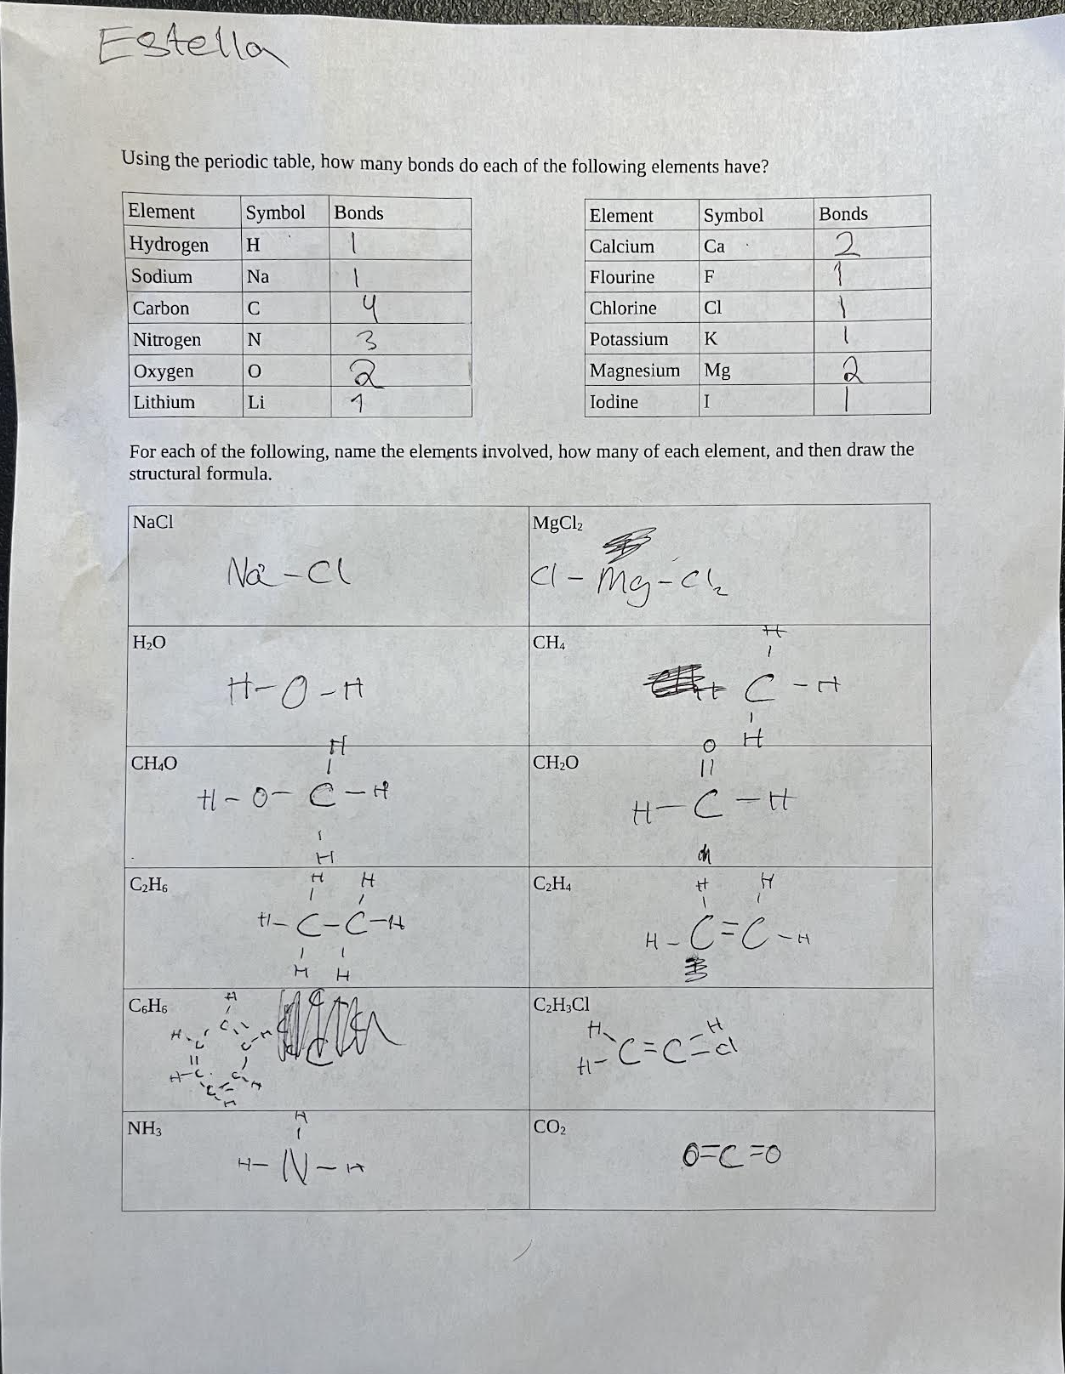 Estella
Using the periodic table, how many bonds do each of the following elements have?
Element Symbol Bonds
Hydrogen H 1
Sodium Na 1
Carbon C 4
Nitrogen N 3
Oxygen O 2
Lithium Li 1
Element Symbol Bonds
Calcium Ca 2
Flourine F 1
Chlorine Cl 1
Potassium K 1
Magnesium Mg 2
Iodine I 1
For each of the following, name the elements involved, how many of each element, and then draw the
structural formula.
NaCl
Na - Cl
MgCl₂
Cl - Mg - Cl₂
H₂O
H - O - H
CH₄
H
H C - H
H
CH₄O
H
H - O - C - H
H
CH₂O
O
H - C - H
C₂H₆
H H
H - C - C - H
H H
C₂H₄
H H
H - C = C - H
C₆H₆
H
H C H
C C
H - C C H
C
H
C₂H₃Cl
H H
H - C = C - Cl
NH₃
H
H - N - H
CO₂
O=C=O